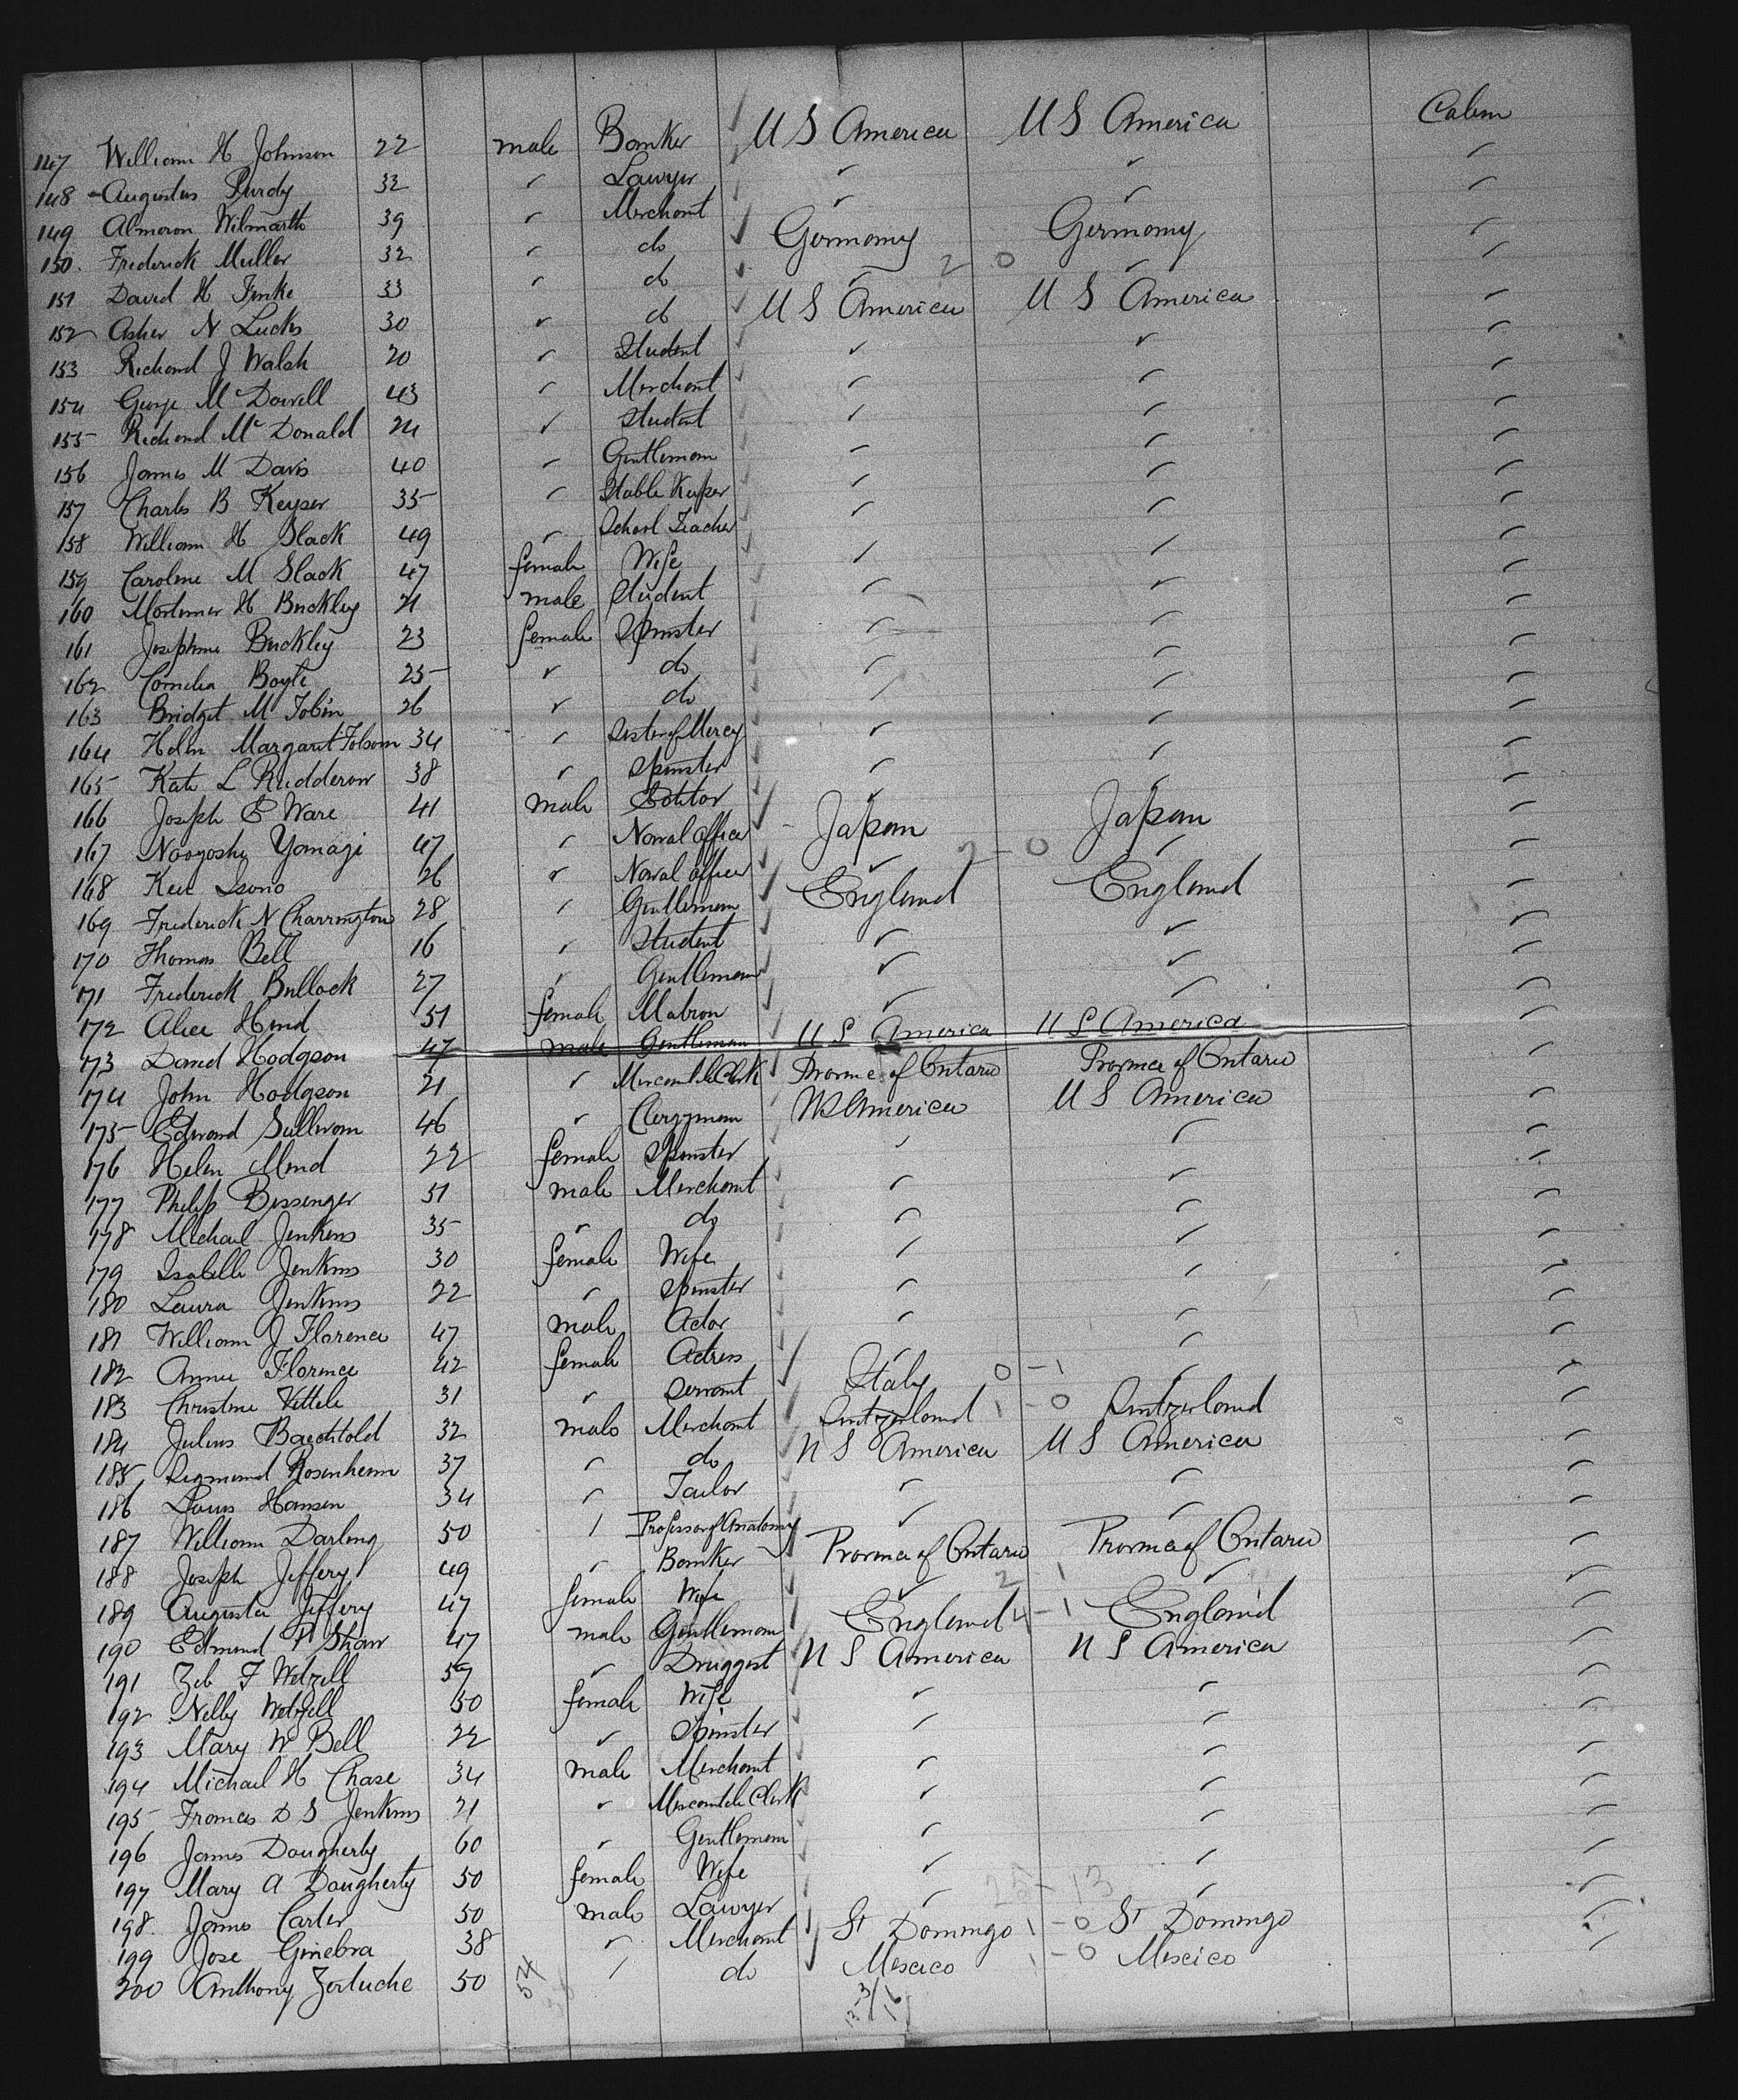 147 William H Johnson 22 male Banker U S America U S America Cabin
148 Augustus Purdy 32 ✓ Lawyer ✓ ✓ ✓
149 Almeron Wilmarth 39 ✓ Merchant ✓ ✓ ✓
150 Frederick Muller 32 ✓ do Germany Germany ✓
151 David H Finke 33 ✓ do ✓ 2 0 ✓ ✓
152 Asher N Lucks 30 ✓ do U S America U S America ✓
153 Richard J Walsh 20 ✓ Student ✓ ✓ ✓
154 George Mc Dowell 43 ✓ Merchant ✓ ✓ ✓
155 Richard Mc Donald 24 ✓ Student ✓ ✓ ✓
156 James M Davis 40 ✓ Gentleman ✓ ✓ ✓
157 Charles B Keyser 35 ✓ Stable Keeper ✓ ✓ ✓
158 William H Slack 49 ✓ School Teacher ✓ ✓ ✓
159 Caroline M Slack 47 female Wife ✓ ✓ ✓
160 Mortimer H Buckley 21 male Student ✓ ✓ ✓
161 Josephine Buckley 23 female Spinster ✓ ✓ ✓
162 Cornelia Boyle 25 ✓ do ✓ ✓ ✓
163 Bridget M Tobin 26 ✓ do ✓ ✓ ✓
164 Hellen Margaret Folsom 34 ✓ Sister of Mercy ✓ ✓ ✓
165 Kate L Rudderow 38 ✓ Spinster ✓ ✓ ✓
166 Joseph E Ware 41 male Editor ✓ ✓ ✓
167 Naoyoshy Yamagi 47 ✓ Naval officer Japan Japan ✓
168 Ken Isono 26 ✓ Naval officer ✓ 2 - 0 ✓ ✓
169 Frederick N Charrington 28 ✓ Gentleman England England ✓
170 Thomas Bell 16 ✓ Student ✓ ✓ ✓
171 Frederick Bullock 27 ✓ Gentleman ✓ ✓ ✓
172 Alice Hind 51 female Matron ✓ ✓ ✓
173 David Hodgson 47 male Gentleman U S America U S America ✓
174 John Hodgson 21 ✓ Mercantile Clerk Province of Ontario Province of Ontario ✓
175 Edward Sullivan 46 ✓ Clergyman U S America U S America ✓
176 Helen Mind 22 female Spinster ✓ ✓ ✓
177 Philip Bissenger 51 male Merchant ✓ ✓ ✓
178 Michael Jenkins 35 ✓ do ✓ ✓ ✓
179 Isabelle Jenkins 30 female Wife ✓ ✓ ✓
180 Laura Jenkins 22 ✓ Spinster ✓ ✓ ✓
181 William J Florence 47 male Actor ✓ ✓ ✓
182 Annie Florence 42 female Actress ✓ ✓ ✓
183 Christine Vittele 31 ✓ Servant Italy 0 - 1 ✓ ✓
184 Julius Baechtold 32 male Merchant Switzerland 1 - 0 Switzerland ✓
185 Sigmund Rosenheim 37 ✓ do U S America U S America ✓
186 Louis Hansen 34 ✓ Tailor ✓ ✓ ✓
187 William Darling 50 ✓ Professor of Anatomy ✓ ✓ ✓
188 Joseph Jeffery 49 ✓ Banker Province of Ontario Province of Ontario ✓
189 Augusta Jeffery 47 female Wife ✓ 2 - 1 ✓ ✓
190 Edmund P Shaw 47 male Gentleman England 4 - 1 England ✓
191 Zeb F Wetzell 57 ✓ Druggist U S America U S America ✓
192 Nelly Wetzell 50 female Wife ✓ ✓ ✓
193 Mary W Bell 22 ✓ Spinster ✓ ✓ ✓
194 Michael H Chase 34 male Merchant ✓ ✓ ✓
195 Frances D S Jenkins 21 ✓ Mercantile Clerk ✓ ✓ ✓
196 James Dougherty 60 ✓ Gentleman ✓ ✓ ✓
197 Mary A Dougherty 50 female Wife ✓ ✓ ✓
198 James Carter 50 male Lawyer ✓ ✓ ✓
199 Jose Ginebra 38 ✓ Merchant St Domingo 1 - 0 St Domingo ✓
200 Anthony Zertuche 50 ✓ do Mexico 1 - 0 Mexico ✓